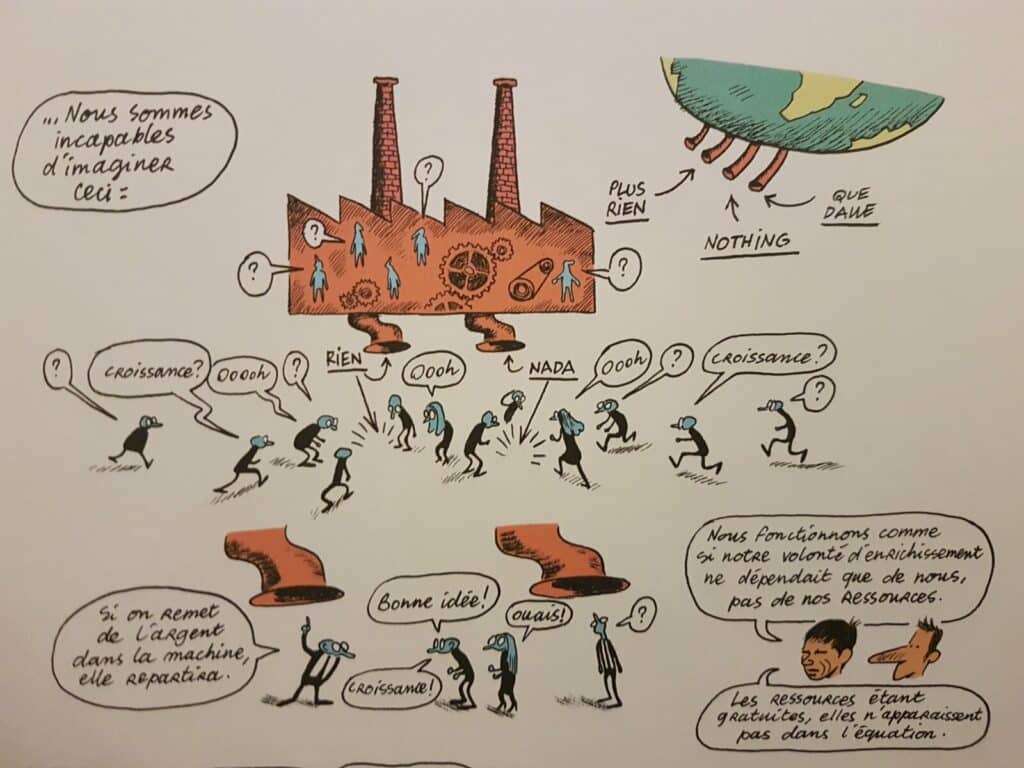 ... Nous sommes
incapables
d'imaginer
ceci :
?
?
?
?
PLUS
RIEN
NOTHING
QUE
DALLE
?
CROISSANCE ?
Ooooh
?
RIEN
Oooh
NADA
Oooh
?
CROISSANCE ?
?
Si on remet
de l'argent
dans la machine,
elle repartira.
Bonne idée !
CROISSANCE !
Ouais !
?
Nous fonctionnons comme
si notre volonté d'enrichissement
ne dépendait que de nous,
pas de nos RESSOURCES.
Les RESSOURCES étant
gratuites, elles n'apparaissent
pas dans l'équation.